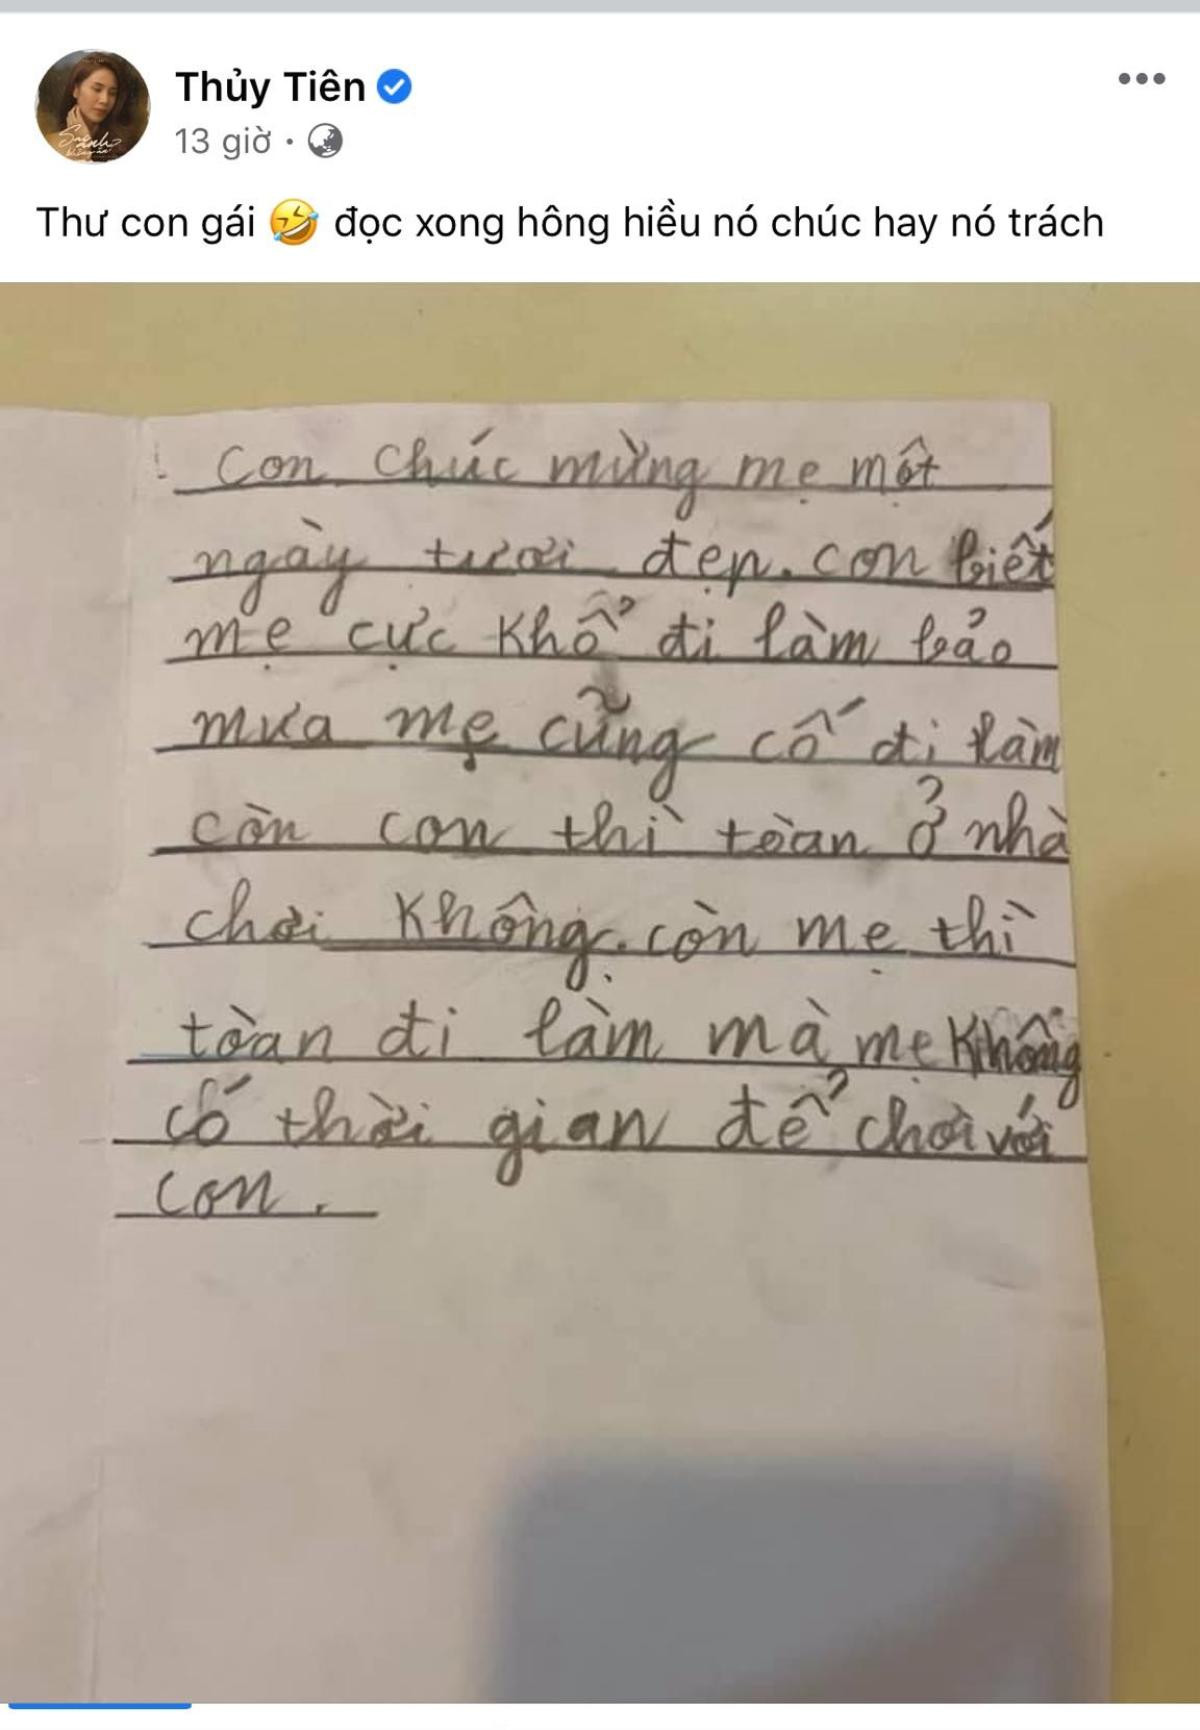 Thủy Tiên
13 giờ ·
Thư con gái 🤣 đọc xong hông hiều nó chúc hay nó trách
Con chúc mừng mẹ một
ngày tươi đẹp. con biết
mẹ cực khổ đi làm bảo
mưa mẹ cũng cố đi làm
còn con thì tòan ở nhà
chơi không. còn mẹ thì
tòan đi làm mà mẹ không
có thời gian để chơi với
con.